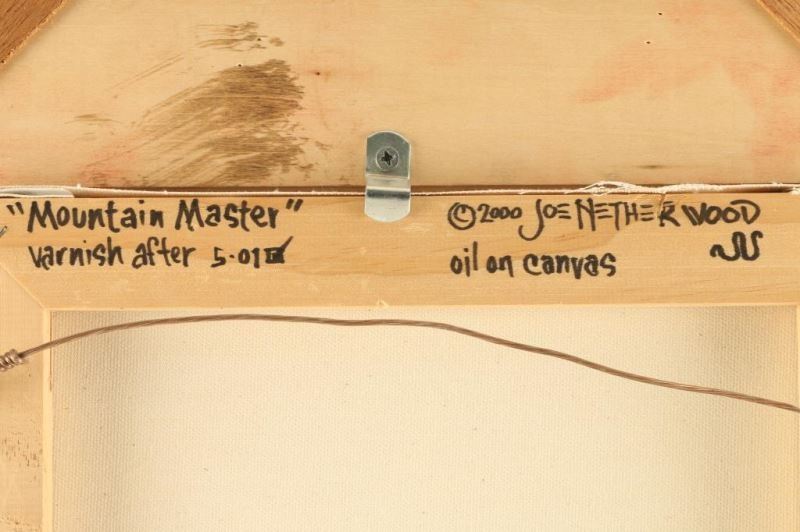 "Mountain Master"
varnish after 5-01
© 2000 JOE NETHERWOOD
oil on canvas